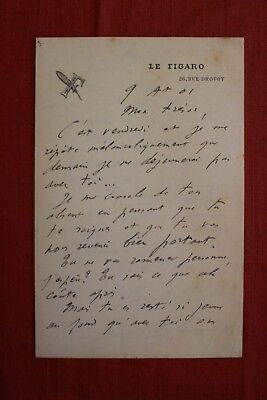 LE FIGARO
26, RUE DROUOT
9 At 01
Mon trésor,
C'est vendredi et je me
répète mélancoliquement que
demain je ne déjeunerai pas
avec toi...
Je me console de ton
absence en pensant que tu
te soignes et que tu vas
nous revenir bien portant.
Tu ne vas ramener personne,
j'espère? Tu sais ce que cela
coûte après.
Mais tu es resté si jeune
au fond qu'avec toi on